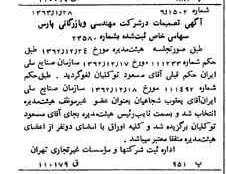 شماره ۹۱۵۰۲ ۱۳۶۳/۱/۲۸
آگهی تصمیمات درشرکت مهندسی وبازرگانی پارس
سهامی خاص ثبت‌شده بشماره ۲۳۵۸۰
طبق صورتجلسه هیئت‌مدیره مورخ ۱۳۶۲/۱۲/۲۴ طبق
حکم شماره ۱۱۱۲۳۳ مورخ ۱۳۶۲/۱۲/۱۷ سازمان صنایع ملی
ایران حکم قبلی آقای مسعود توکلیان لغوگردید . طبق‌حکم
شماره ۱۱۱۴۹۲ مورخ ۱۳۶۲/۱۲/۱۸ سازمان صنایع ملی
ایران‌آقای یعقوب شجاعیان بعنوان عضو غیرموظف هیئت‌مدیره
انتخاب شد و بسمت نایب‌رئیس هیئت‌مدیره بجای آقای مسعود
توکلیان برگزیده شد و کلیه اوراق با امضای دونفر از اعضای
هیئت‌مدیره متفقا معتبر میباشد .
اداره ثبت شرکتها و مؤسسات غیرتجاری تهران
پ ۹۵۱ ق ۱۱۰۱۷۹